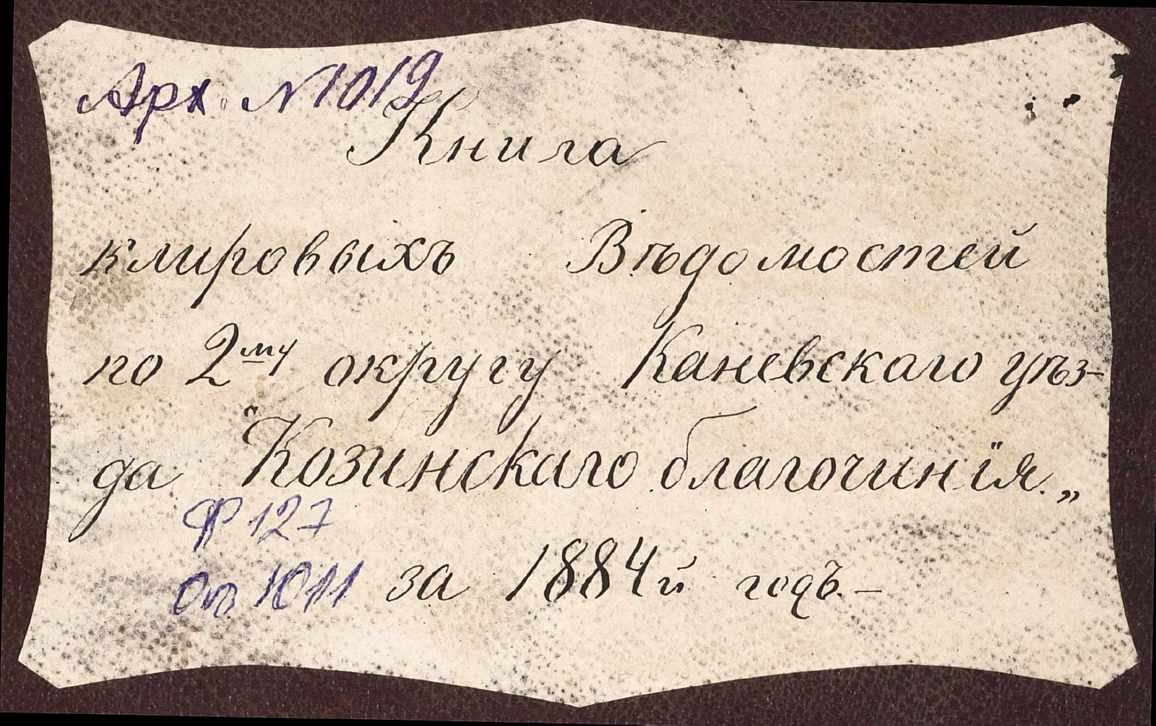 Арх. N 1019
Книга
клировыхъ Вѣдомостей
по 2му округу Каневскаго уѣз-
да "Козинскаго благочинія.„
Ф 127
оп 1011 за 1884й годъ.-